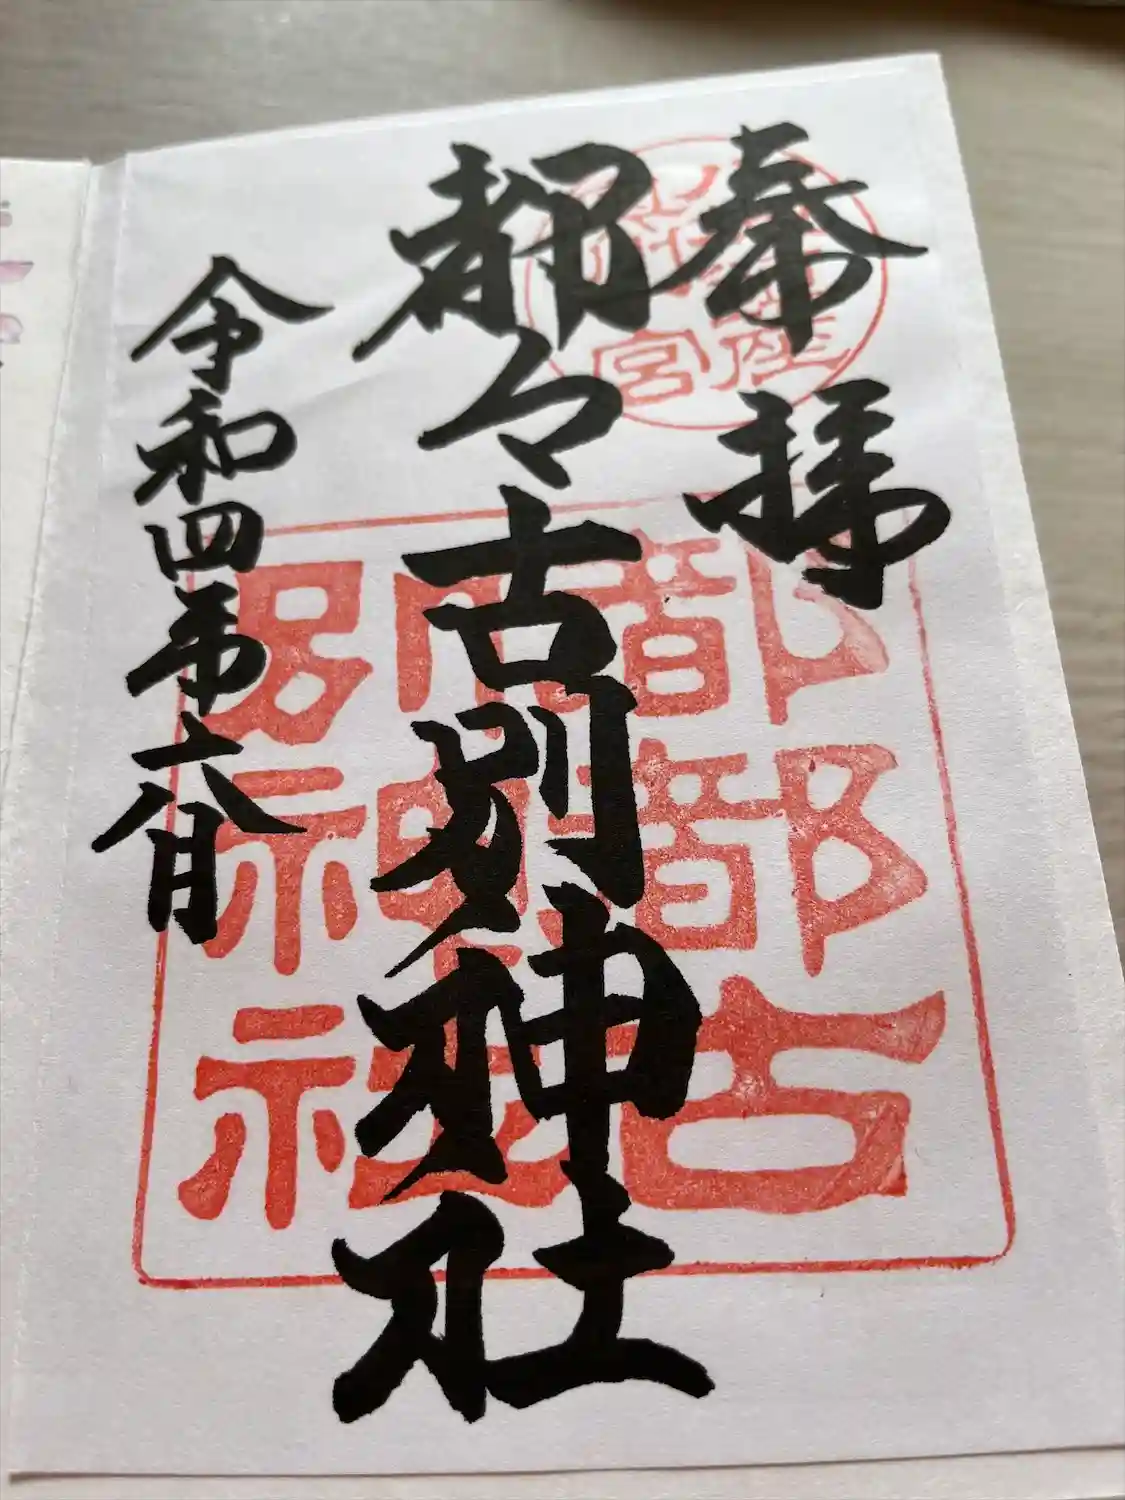 奉拝
都々古別神社
令和四年六月
都都古
別神社